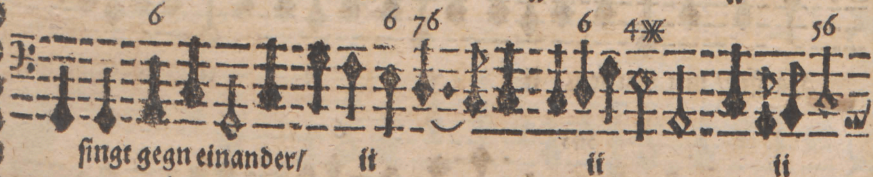 6 6 76 6 4 56
ſingt gegn einander/ ij ij ij